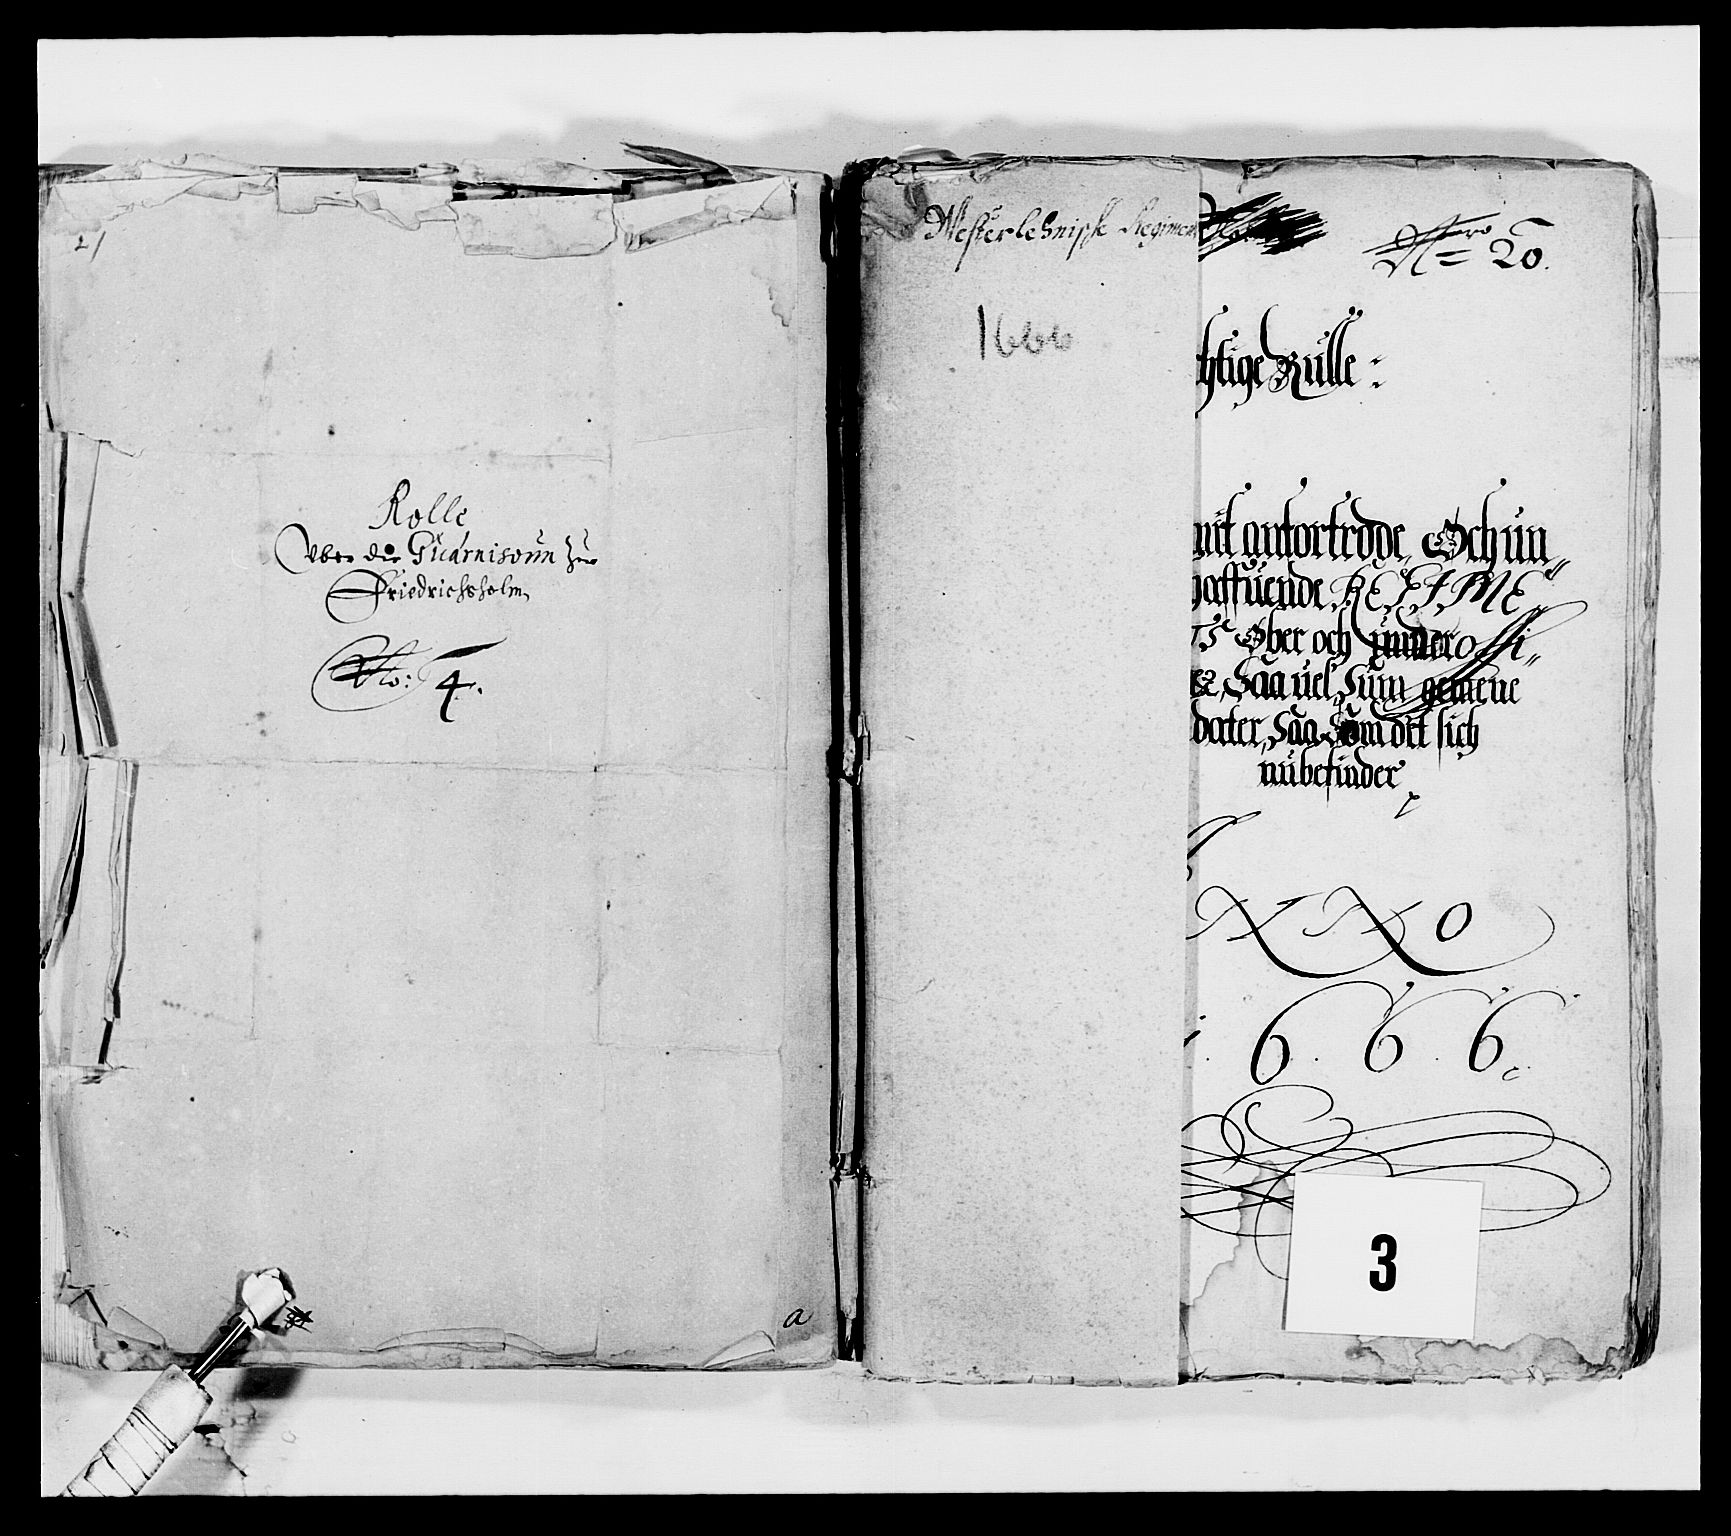 21
Rolle
Vber die Guarnisoun zur
Friedrichsholm
No: 4.
a
Westerlehnische Regimen
1666
Nro 20.
htige Rulle:
mit antortrode, Och un„
haffuende REGIME„
TS Ober och under offi„
Saa uel, Sum gemene
dater, Saa Som det sich
nu befinder
A N N O
1.6.6.6.
3